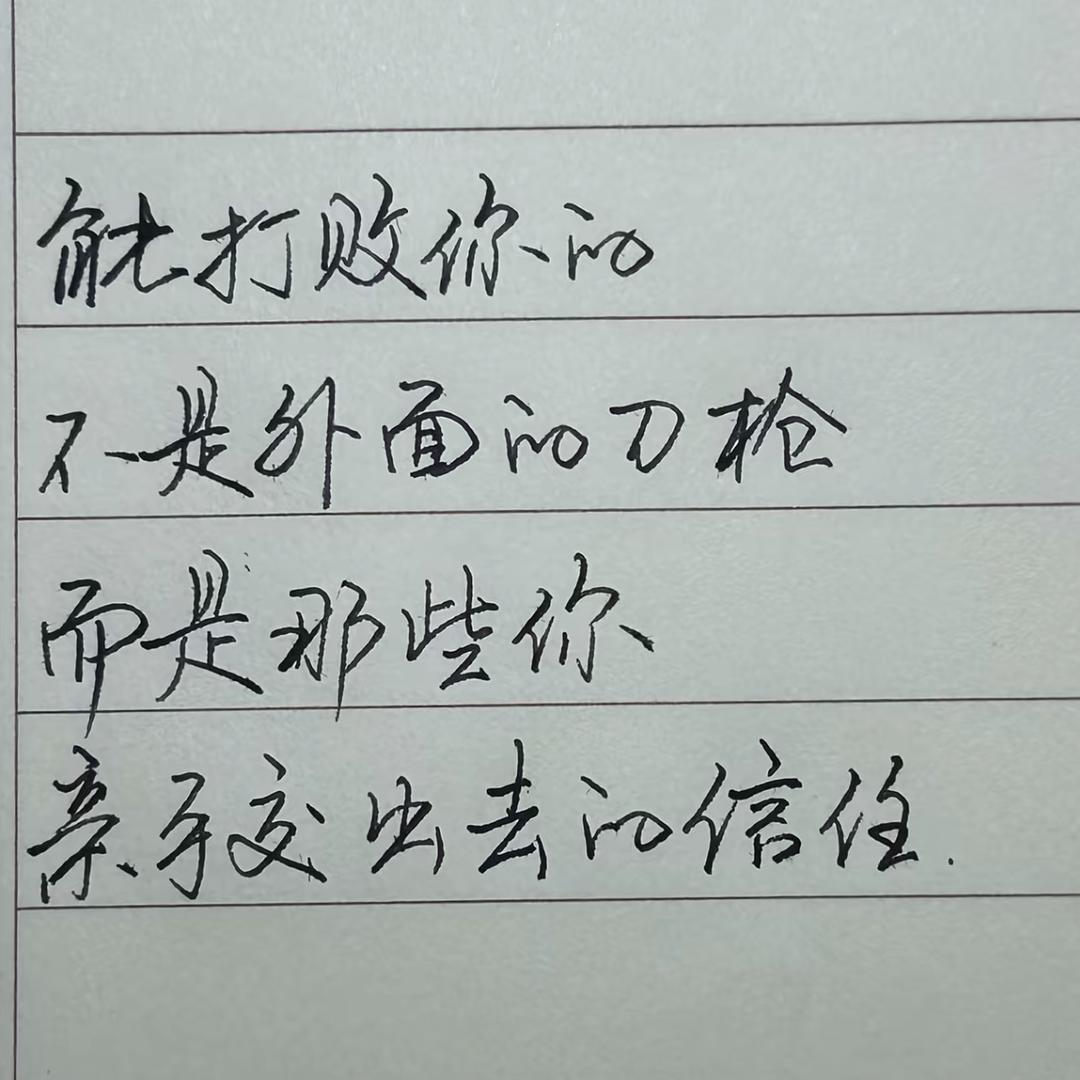 能打败你的
不是外面的刀枪
而是那些你
亲手交出去的信任.